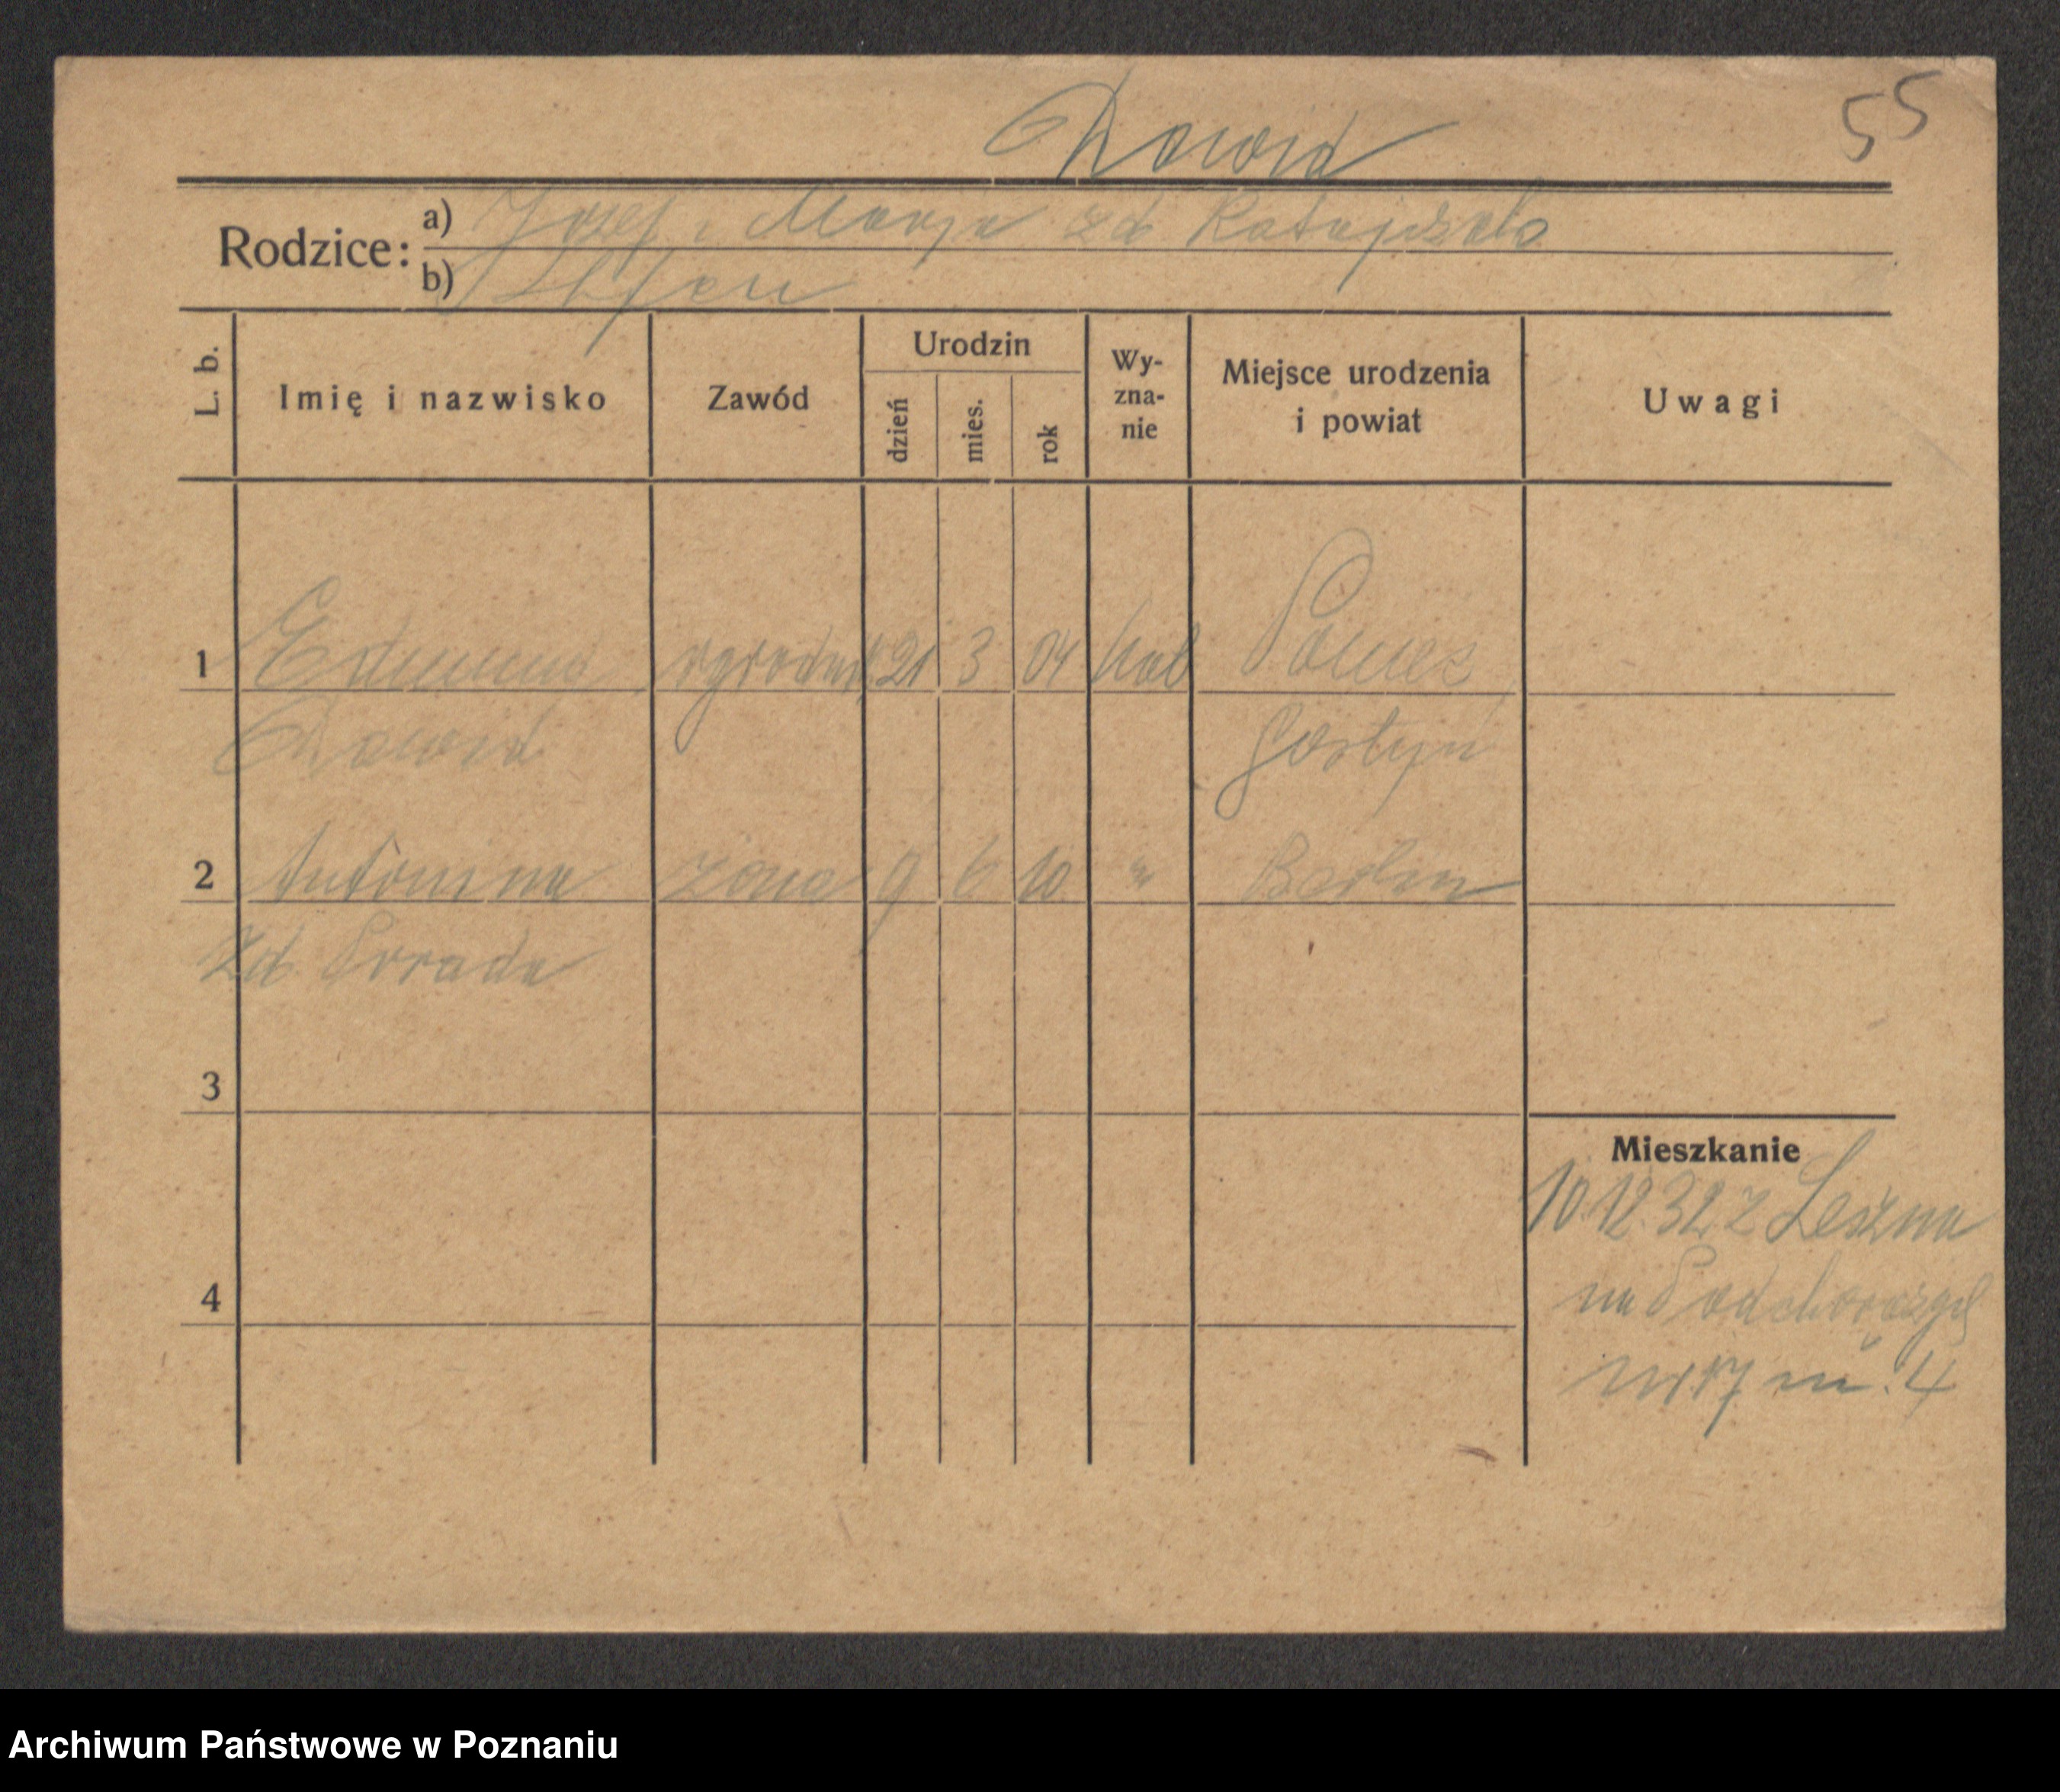 55
Dawid
Rodzice:
a) Józef i Marja zd Ratajczak
b)
L. b.
Imię i nazwisko
Zawód
Urodzin
dzień
mies.
rok
Wy-
zna-
nie
Miejsce urodzenia
i powiat
Uwagi
1 Edmund ogrodnik 21 3 04 kat
Dawid Gostyń
2 Antonina żona 9 6 10 " Berlin
zd.
3
Mieszkanie
10.12.32 z Leszna
na Podchorążych
4
nr 17 m. 4
Archiwum Państwowe w Poznaniu